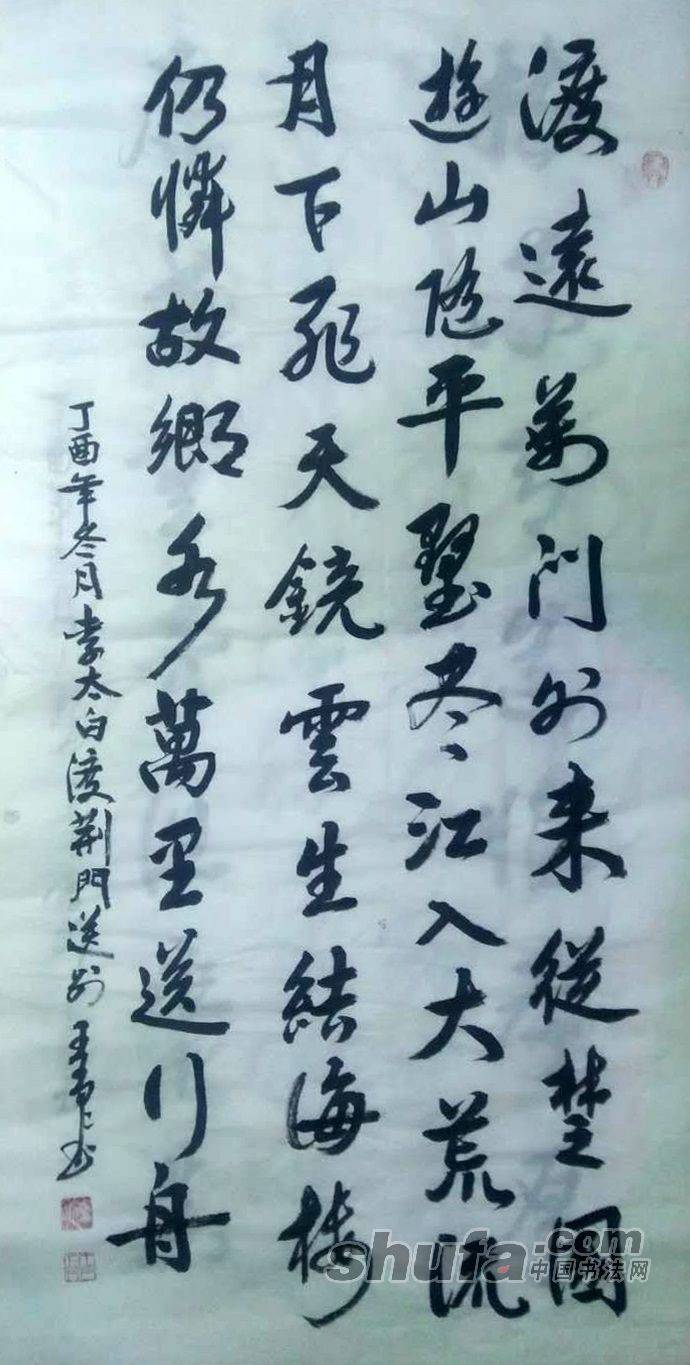 渡遠荆门外来從楚國
遊山随平墅尽江入大荒流
月下飛天鏡雲生結海楼
仍憐故鄉水萬里送行舟
丁酉年冬月李太白渡荆門送别
shufa.com
中国书法网